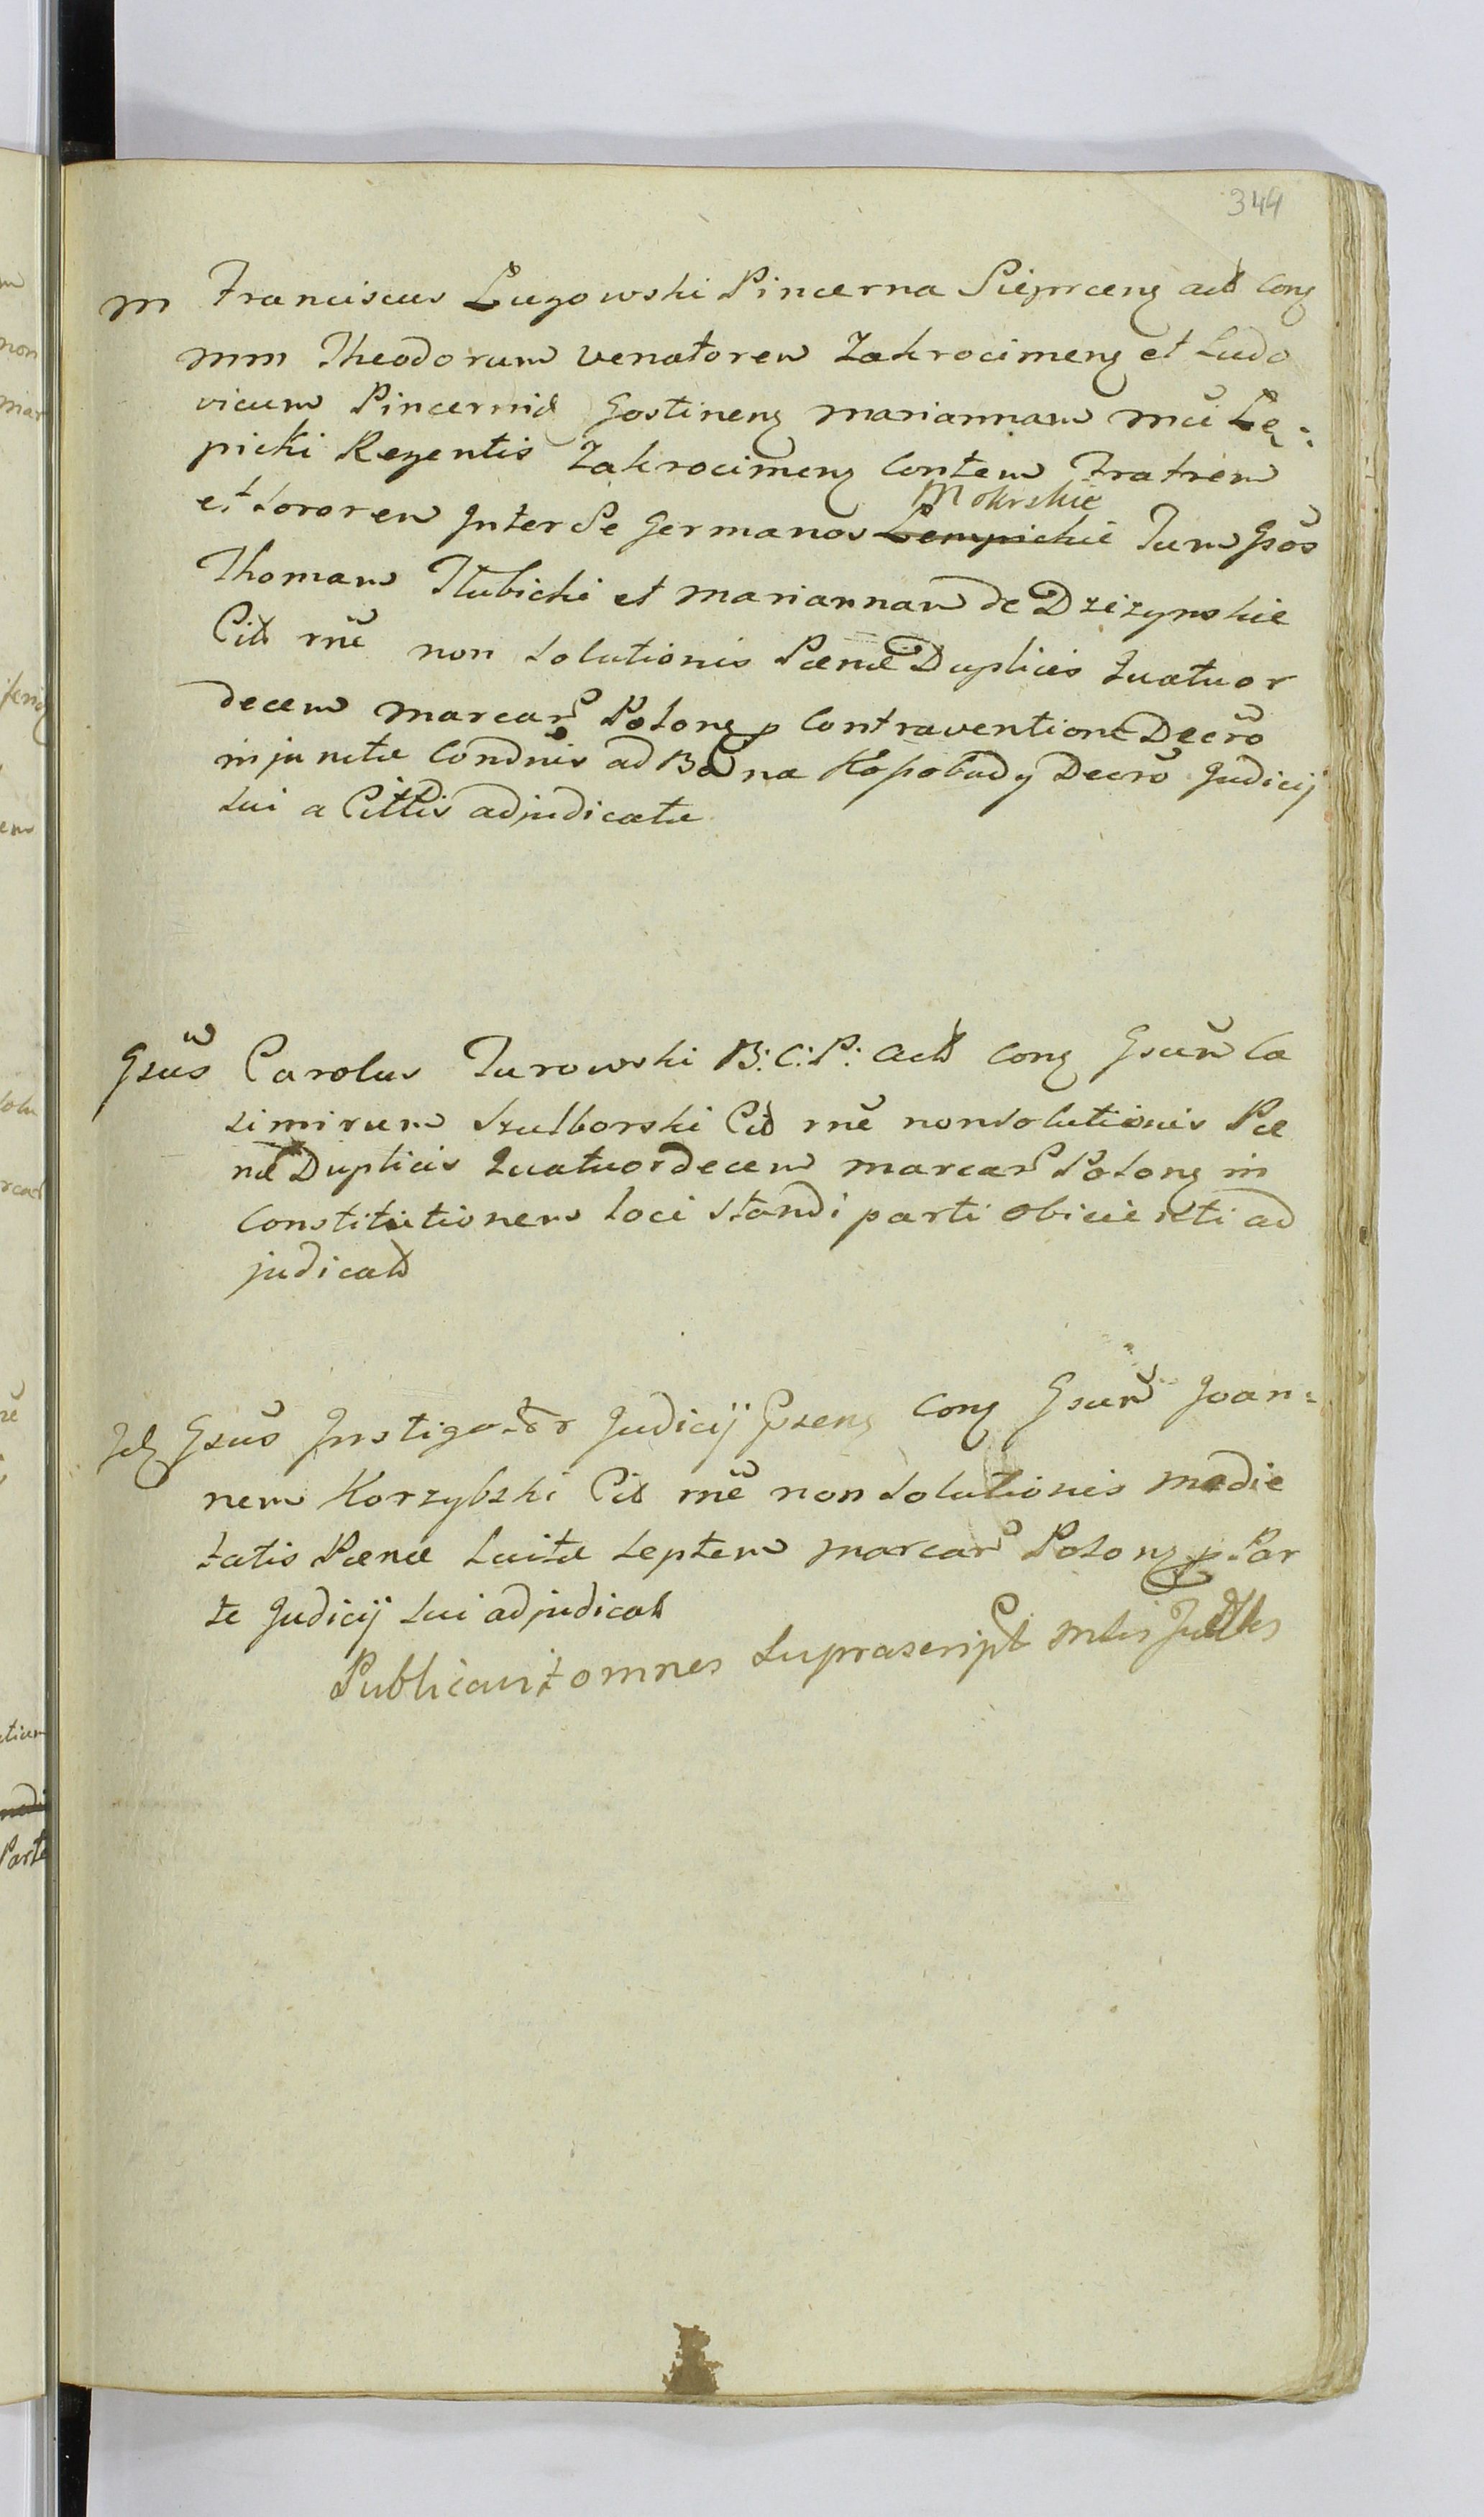 344
M Franciscus Łuzowski Pincerna Sieprceng act Cong
MM Theodorum Venatorem Zakrocimeng et Ludo
vicum Pincernid Gostineng Mariannam Mci Łę=
picki Regentis Zakrocimeng Contem Fratrem
et Sororem Inter Se Germanos Łempickie Mokrskie Tum Gsos
Thomam Tłubicki et Mariannam de Dzizynskie
Citt rne non Solutionis Pænæ Duplicis Quatuor
decem Marcar Polong p Contraventione Decro
injunctæ Condnis ad Bona Kosobudy Decro Judicij
Sui a Cittis adjudicatæ
Gsus Carolus Turowski B: C: P: Act Cong Gsum Ca
simirum Szulborski Citt rne non Solutionis Pæ
næ Duplicis Quatuordecem Marcar Polong in
Constitutionem Loci Standi parti obiicienti ad
judicat
Idg Gsus Instigator Judicij Pseng Cong Gsum Joan=
nem Korzybski Citt rne non Solutionis Medie
tatis Pænæ Luitæ Septem Marcar Polong p Par
te Judicij Sui adjudicat
Publicavit omnes Suprascript